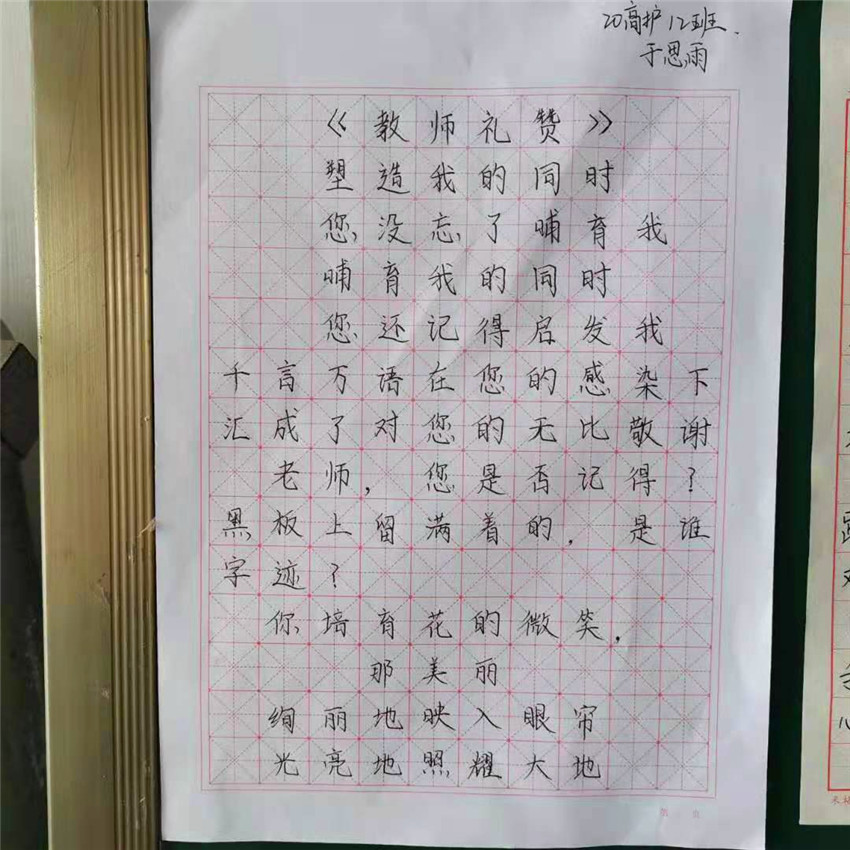 20高护12班.
于思雨
《教师礼赞》
塑造我的同时
您没忘了哺育我
哺育我的同时
您还记得启发我
千言万语在您的感染下
汇成了对您的无比敬谢
老师,您是否记得?
黑板上留满着的,是谁
字迹?
你培育花的微笑,
那美丽
绚丽地映入眼帘
光亮地照耀大地